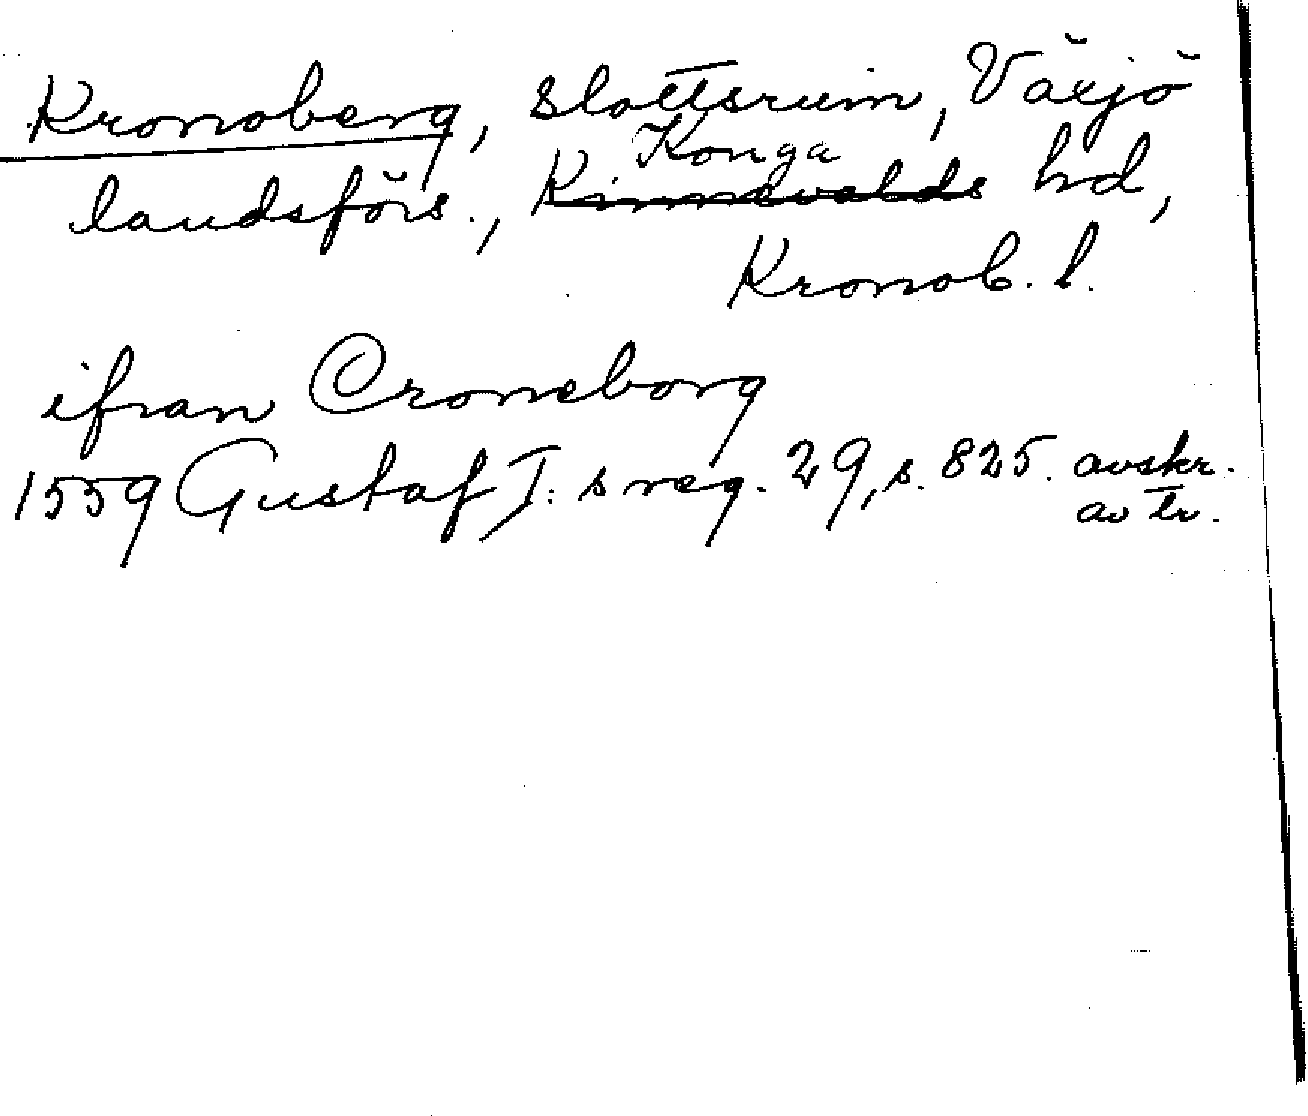 Kronoberg, slottsruin, Växjö
landsförs., Konga hd,
Kronob. l.
ifran Croneborg
1559 Gustaf I:s reg. 29, s. 825. avskr.
av tr.